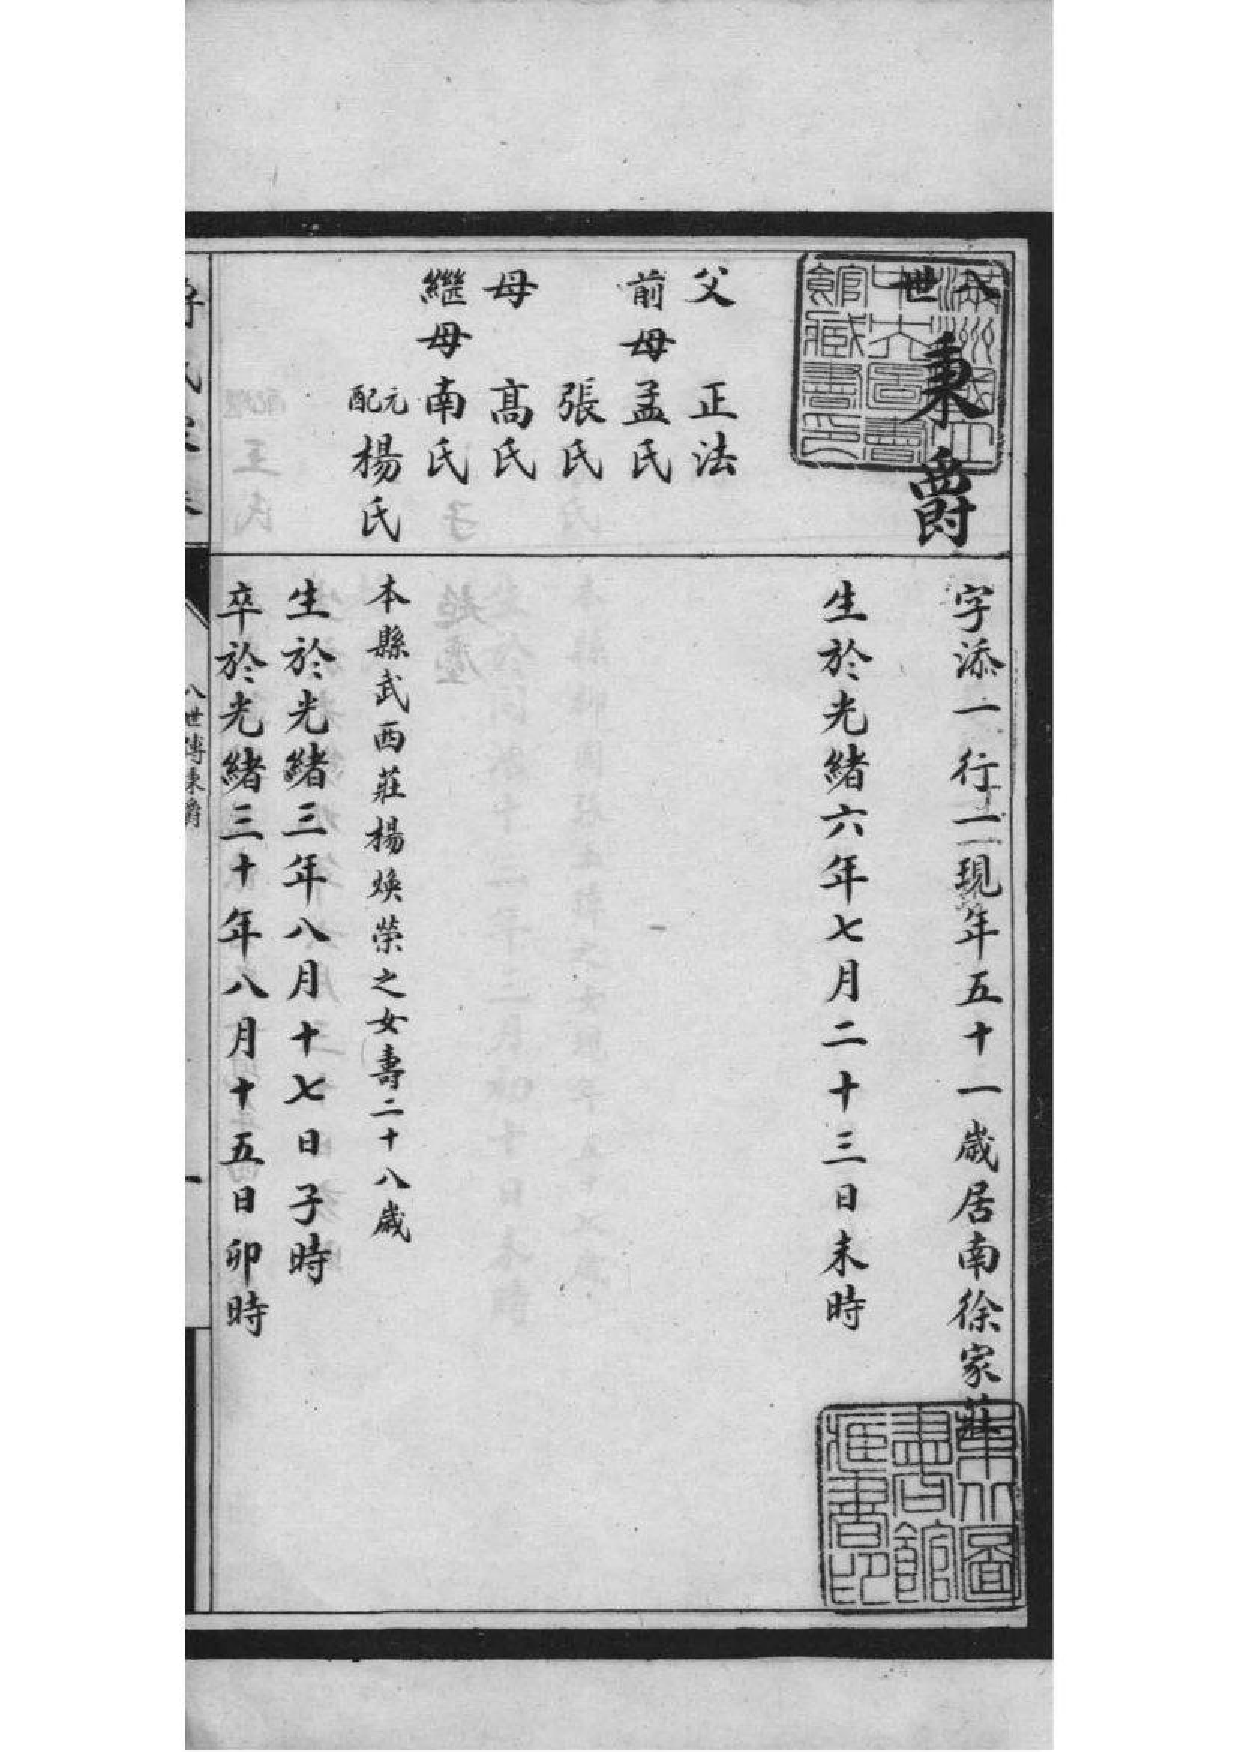 八世
秉爵
字添一行二現年五十一歲居南徐家莊
生於光緒六年七月二十三日未時
父 正法
前母孟氏
張氏
母 高氏
繼母南氏
元配楊氏
本縣武西莊楊煥榮之女壽二十八歲
生於光緒三年八月十七日子時
卒於光緒三十年八月十五日卯時
八世傳秉爵